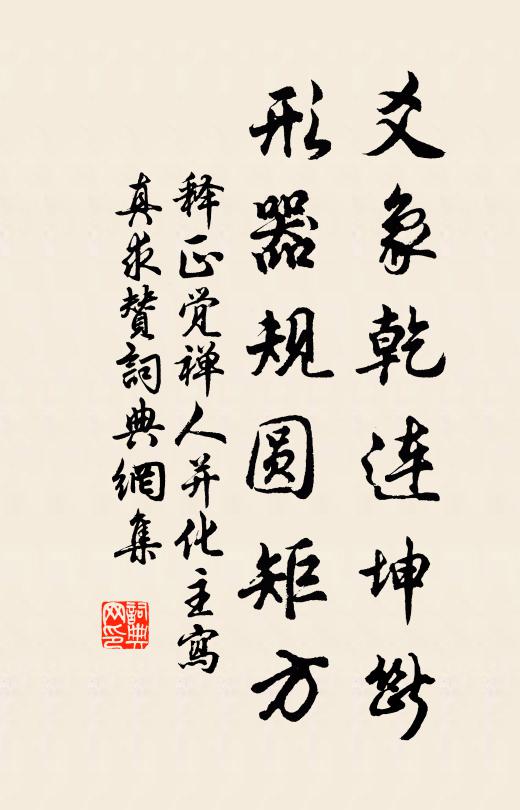 爻象乾连坤断
形器规圆矩方
释正觉禅人并化主寫
真求赞詞典網集
詞典网印